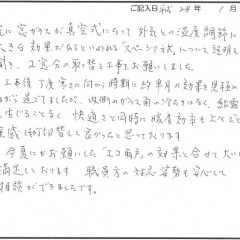 ご記入日 平成 28年 1月
に窓ガラスが真空式になって外気との温度調節に
大きな効果があるといわれる"スペーシア"について説明を
聞き、2窓分の取替え工事をお願いしました。
工事後丁度寒さに向う時期に約半月の効果を見極め
が過ぎてましたが、内側のガラス面のくもりはなく、結露
生じることなく 快適さと同時に暖房効率もよくなと
実感し(何)切替えて良かったと思っております
今夏にかお願いした「エコ雨戸」の効果と合せて大いに
満足しております 職員方の対応姿勢も安心して
相談ができましたです。